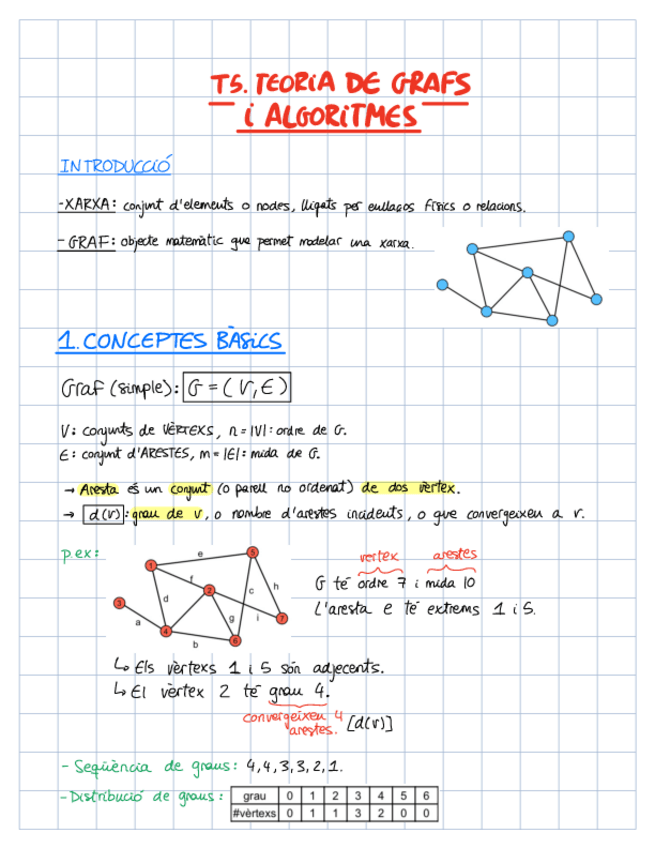 T5. TEORIA DE GRAFS
i ALGORITMES
INTRODUCCIÓ
-XARXA: conjunt d'elements o nodes, lligats per enllaços físics o relacions.
- GRAF: objecte matemàtic que permet modelar una xarxa.
1. CONCEPTES BÀSICS
Graf (simple): G = (V, E)
V: conjunts de VÈRTEXS, n = |V|: ordre de G.
E: conjunt d'ARESTES, m = |E|: mida de G.
→ Aresta és un conjunt (o parell no ordenat) de dos vèrtex.
→ d(v): grau de v, o nombre d'arestes incidents, o que convergeixen a v.
p.ex:
1 2 3 4 5 6 7
a b c d e f g h i
vertex arestes
G té ordre 7 i mida 10
L'aresta e té extrems 1 i 5.
↳ Els vèrtexs 1 i 5 són adjecents.
↳ El vèrtex 2 té grau 4.
convergeixen 4
arestes. [d(v)]
- Seqüència de graus: 4,4,3,3,2,1.
- Distribució de graus:
grau 0 1 2 3 4 5 6
#vèrtexs 0 1 1 3 2 0 0